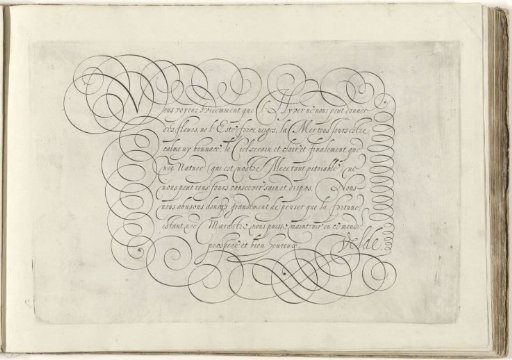 Nous voyons évidemment que l'Hyver ne nous peut donner
des fleurs, ne l'Esté force neiges, la Mer tous jours estre
calme ny bonnace, le Ciel serain et clair et finalement que
Nature (que est nostre Mere tant
nous peut tous jours conserver sain et dispos. Nous
nous abusons donc grandement de penser que la fortune
estant nous puisse maintenir en ce monde
prospere et bien heureux.
Velde.